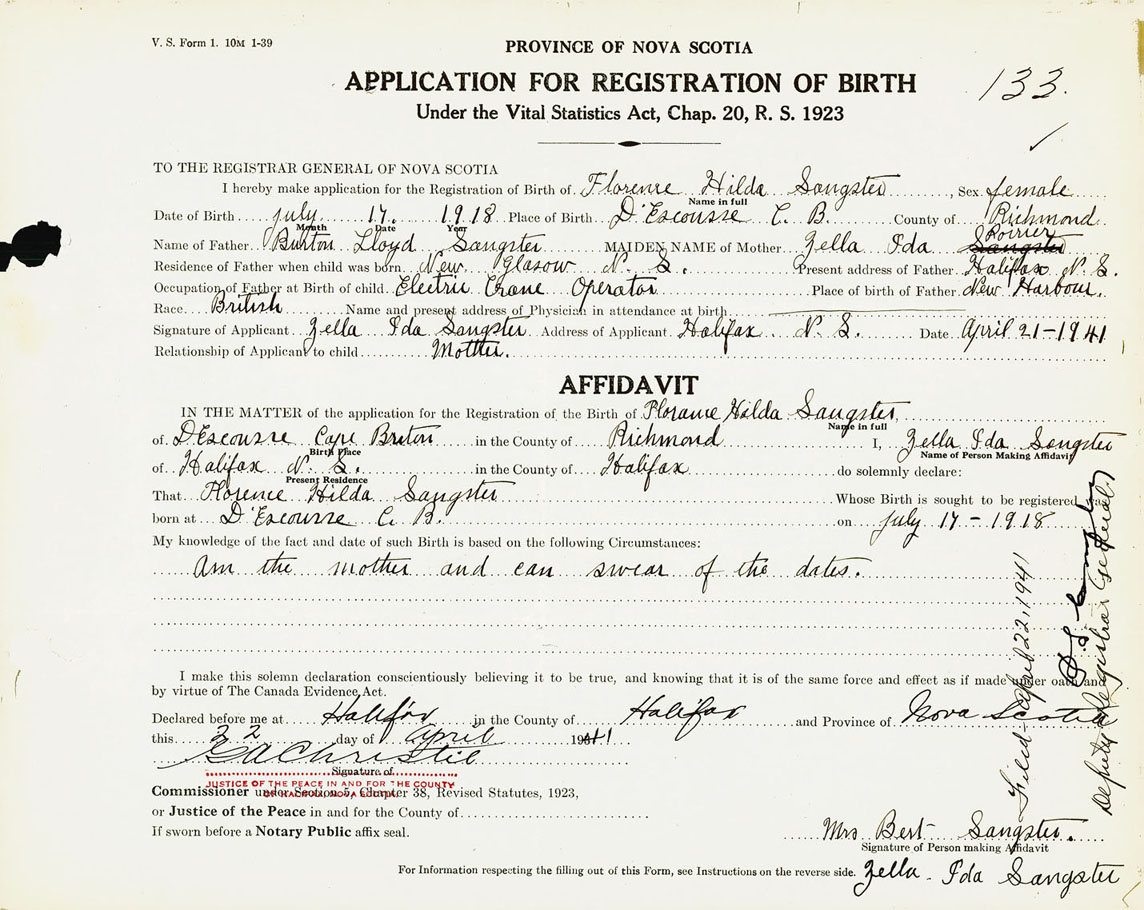 V. S. Form 1. 10M 1-39
PROVINCE OF NOVA SCOTIA
APPLICATION FOR REGISTRATION OF BIRTH
133.
Under the Vital Statistics Act, Chap. 20, R. S. 1923
TO THE REGISTRAR GENERAL OF NOVA SCOTIA
I hereby make application for the Registration of Birth of Florence Hilda Sangster, Sex female
Name in full
Date of Birth july 17. 1918 Place of Birth D'Escousse C. B. County of Richmond
Month Date Year
Poirier
Name of Father Burton Lloyd Sangster MAIDEN NAME of Mother Zella Ida Sangster
Residence of Father when child was born New Glasow N. S. Present address of Father Halifax N. S.
Occupation of Father at Birth of child Electric Crane Operator Place of birth of Father New Harbour.
Race British Name and present address of Physician in attendance at birth
Signature of Applicant Zella Ida Sangster Address of Applicant Halifax N. S. Date April 21-1941
Relationship of Applicant to child Mother.
AFFIDAVIT
IN THE MATTER of the application for the Registration of the Birth of Florance Hilda Sangster,
Name in full
of D'Escousse Cape Breton in the County of Richmond I, Zella Ida Sangster
Birth Place Name of Person Making Affidavit
of Halifax N. S. in the County of Halifax do solemnly declare:
Present Residence
That Florence Hilda Sangster Whose Birth is sought to be registered was
born at D'Escousse C. B. on july 17-1918
My knowledge of the fact and date of such Birth is based on the following Circumstances:
Am the mother and can swear of the dates.
I make this solemn declaration conscientiously believing it to be true, and knowing that it is of the same force and effect as if made under oath and
by virtue of The Canada Evidence Act.
Declared before me at Halifax in the County of Halifax and Province of Nova Scotia
this 22 day of April 1941
Christie
Signature of
JUSTICE OF THE PEACE IN AND FOR THE COUNTY
OF HALIFAX, NOVA SCOTIA
Commissioner under Section 5, Chapter 38, Revised Statutes, 1923,
or Justice of the Peace in and for the County of
If sworn before a Notary Public affix seal.
Mrs Bert Sangster.
Signature of Person making Affidavit
For Information respecting the filling out of this Form, see Instructions on the reverse side.
Zella Ida Sangster
Filed - April 22, 1941
Deputy Registrar General